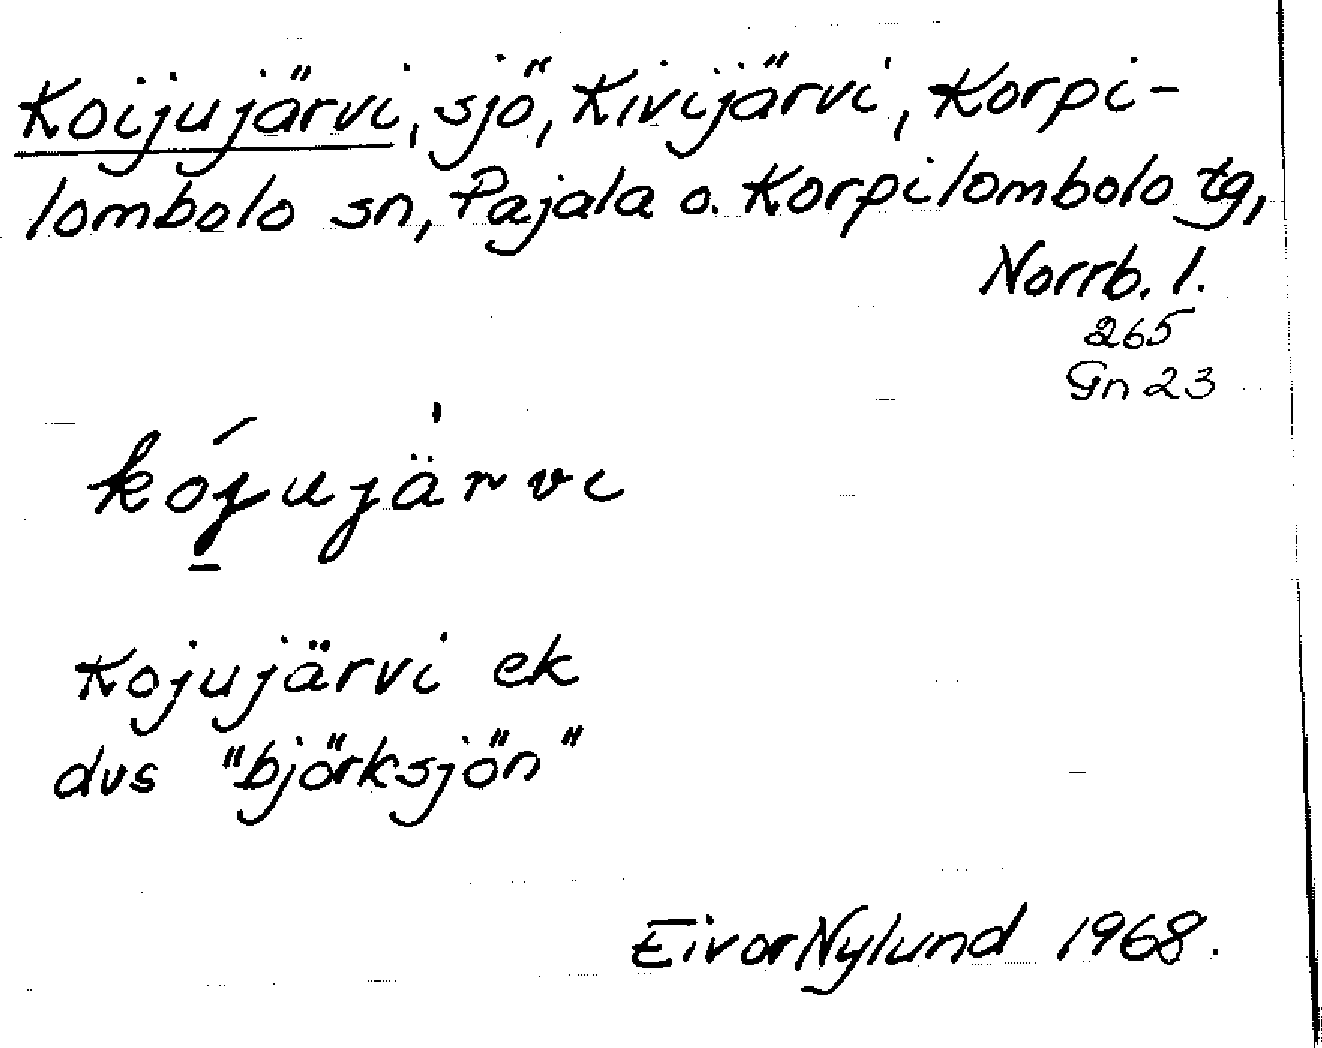 Koijujärvi, sjö, Kivijärvi, Korpi-
lombolo sn, Pajala o. Korpilombolo tg,
Norrb. l.
265
Gn 23
kójujärvi
Kojujärvi ek
dvs "björksjön"
Eivor Nylund 1968.